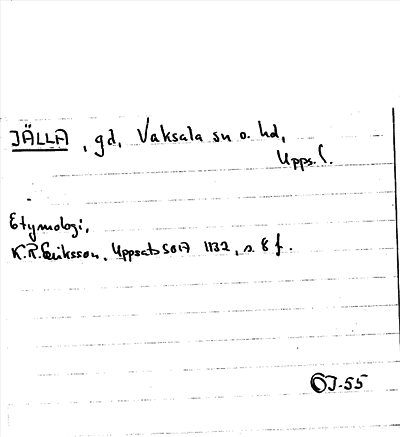 JÄLLA, gd, Vaksala sn o. hd,
Upps. l.
Etymologi,
K.R. Eriksson, Uppsala 1932, s. 8 f.
OJ-55